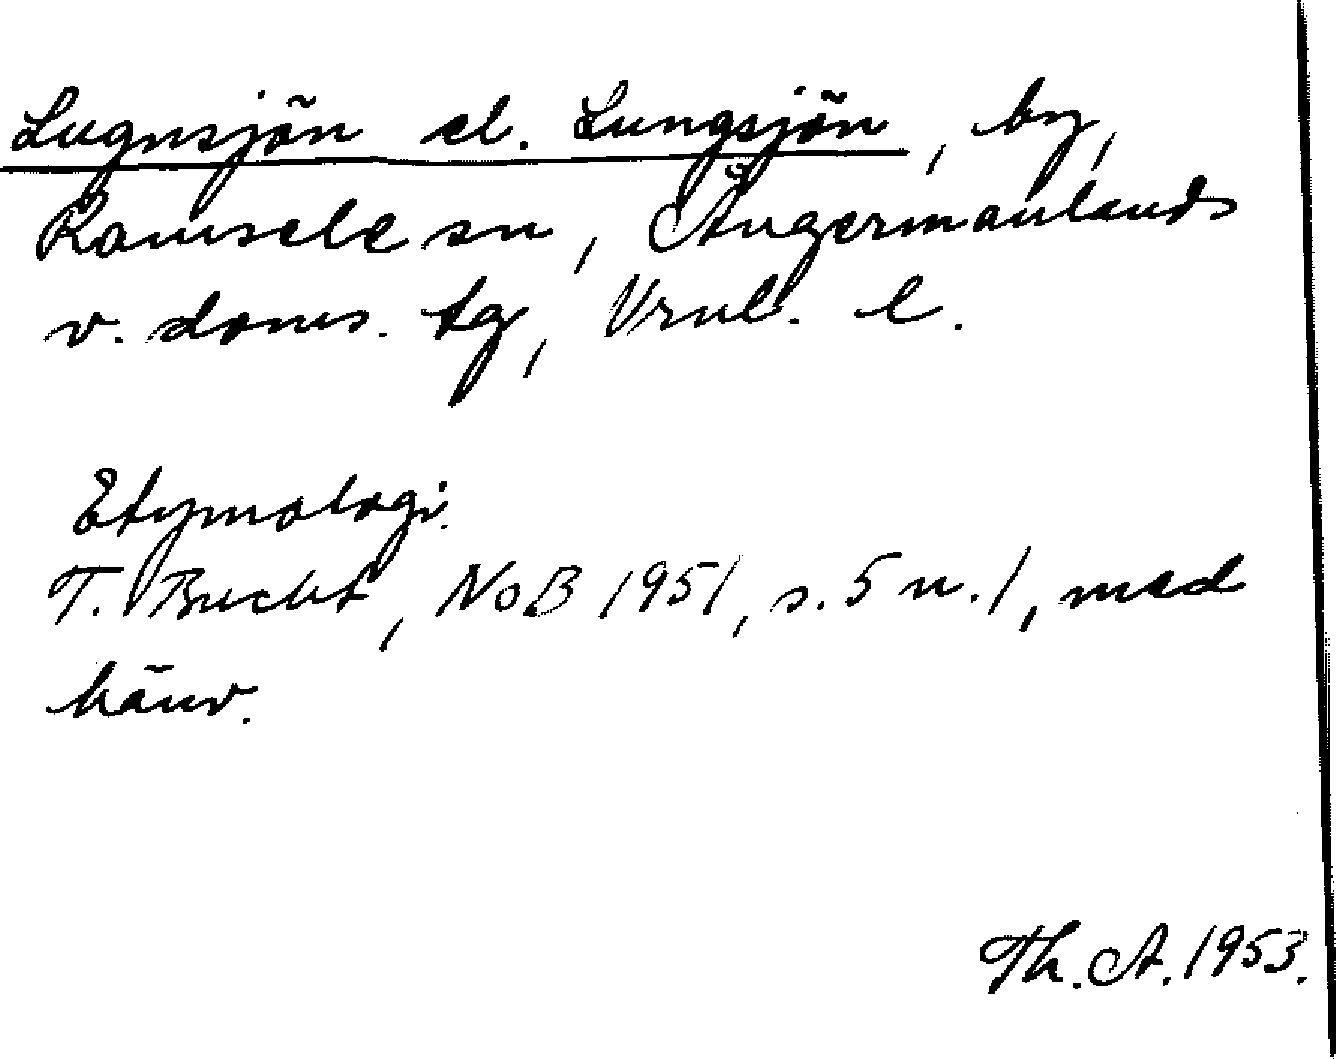 Lugnsjön el. Lungsjön, by,
Ramsele sn, Ångermanlands
v. doms. tg, Vrnl. l.
Etymologi.
T. Bucht, NoB 1951, s. 5 n. 1, med
hänv.
Th. A. 1953.